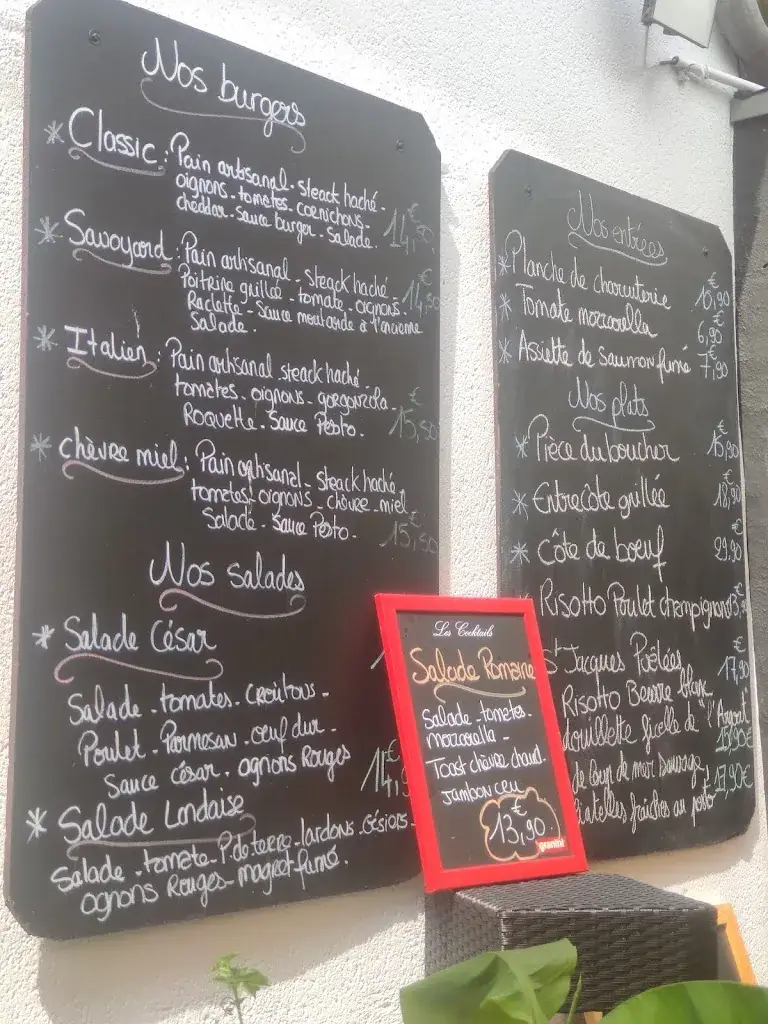 Nos burgers
* Classic : Pain artisanal - steack haché -
oignons - tomates - cornichons -
cheddar - Sauce burger - Salade.
* Savoyard : Pain artisanal - steack haché
Poitrine grillée - tomate - oignons -
Raclette - Sauce moutarde à l'ancienne
Salade.
14,50€
* Italien : Pain artisanal steack haché -
tomates - oignons - gorgonzola -
Roquette - Sauce Pesto.
15,50€
* chèvre miel : Pain artisanal - steack haché
tomates - oignons - chèvre - miel
Salade - Sauce Pesto -
15,50
Nos salades
* Salade César
Salade - tomates - croûtons -
Poulet - Parmesan - oeuf dur -
Sauce césar - ognons Rouges
* Salade Landaise
Salade - tomate - P. de terre - lardons - Gésiers -
ognons Rouges - magret fumé.
Les Cocktails
Salade Romaine
Salade - tomates -
mozzarella -
Toast chèvre chaud -
Jambon cru
13,90€
granini
Nos entrées
* Planche de charcuterie 16,90€
* Tomate mozzarella 6,90€
* Assiette de saumon fumé 7,90€
Nos plats
* Pièce du boucher 15,90€
* Entrecôte grillée 18,90€
* Côte de boeuf 29,90€
Risotto Poulet champignons
St Jacques Poêlées 17,90€
Risotto Beurre blanc
ficelle de
de loup de mer sauvage 17,90€
fraîches au pesto